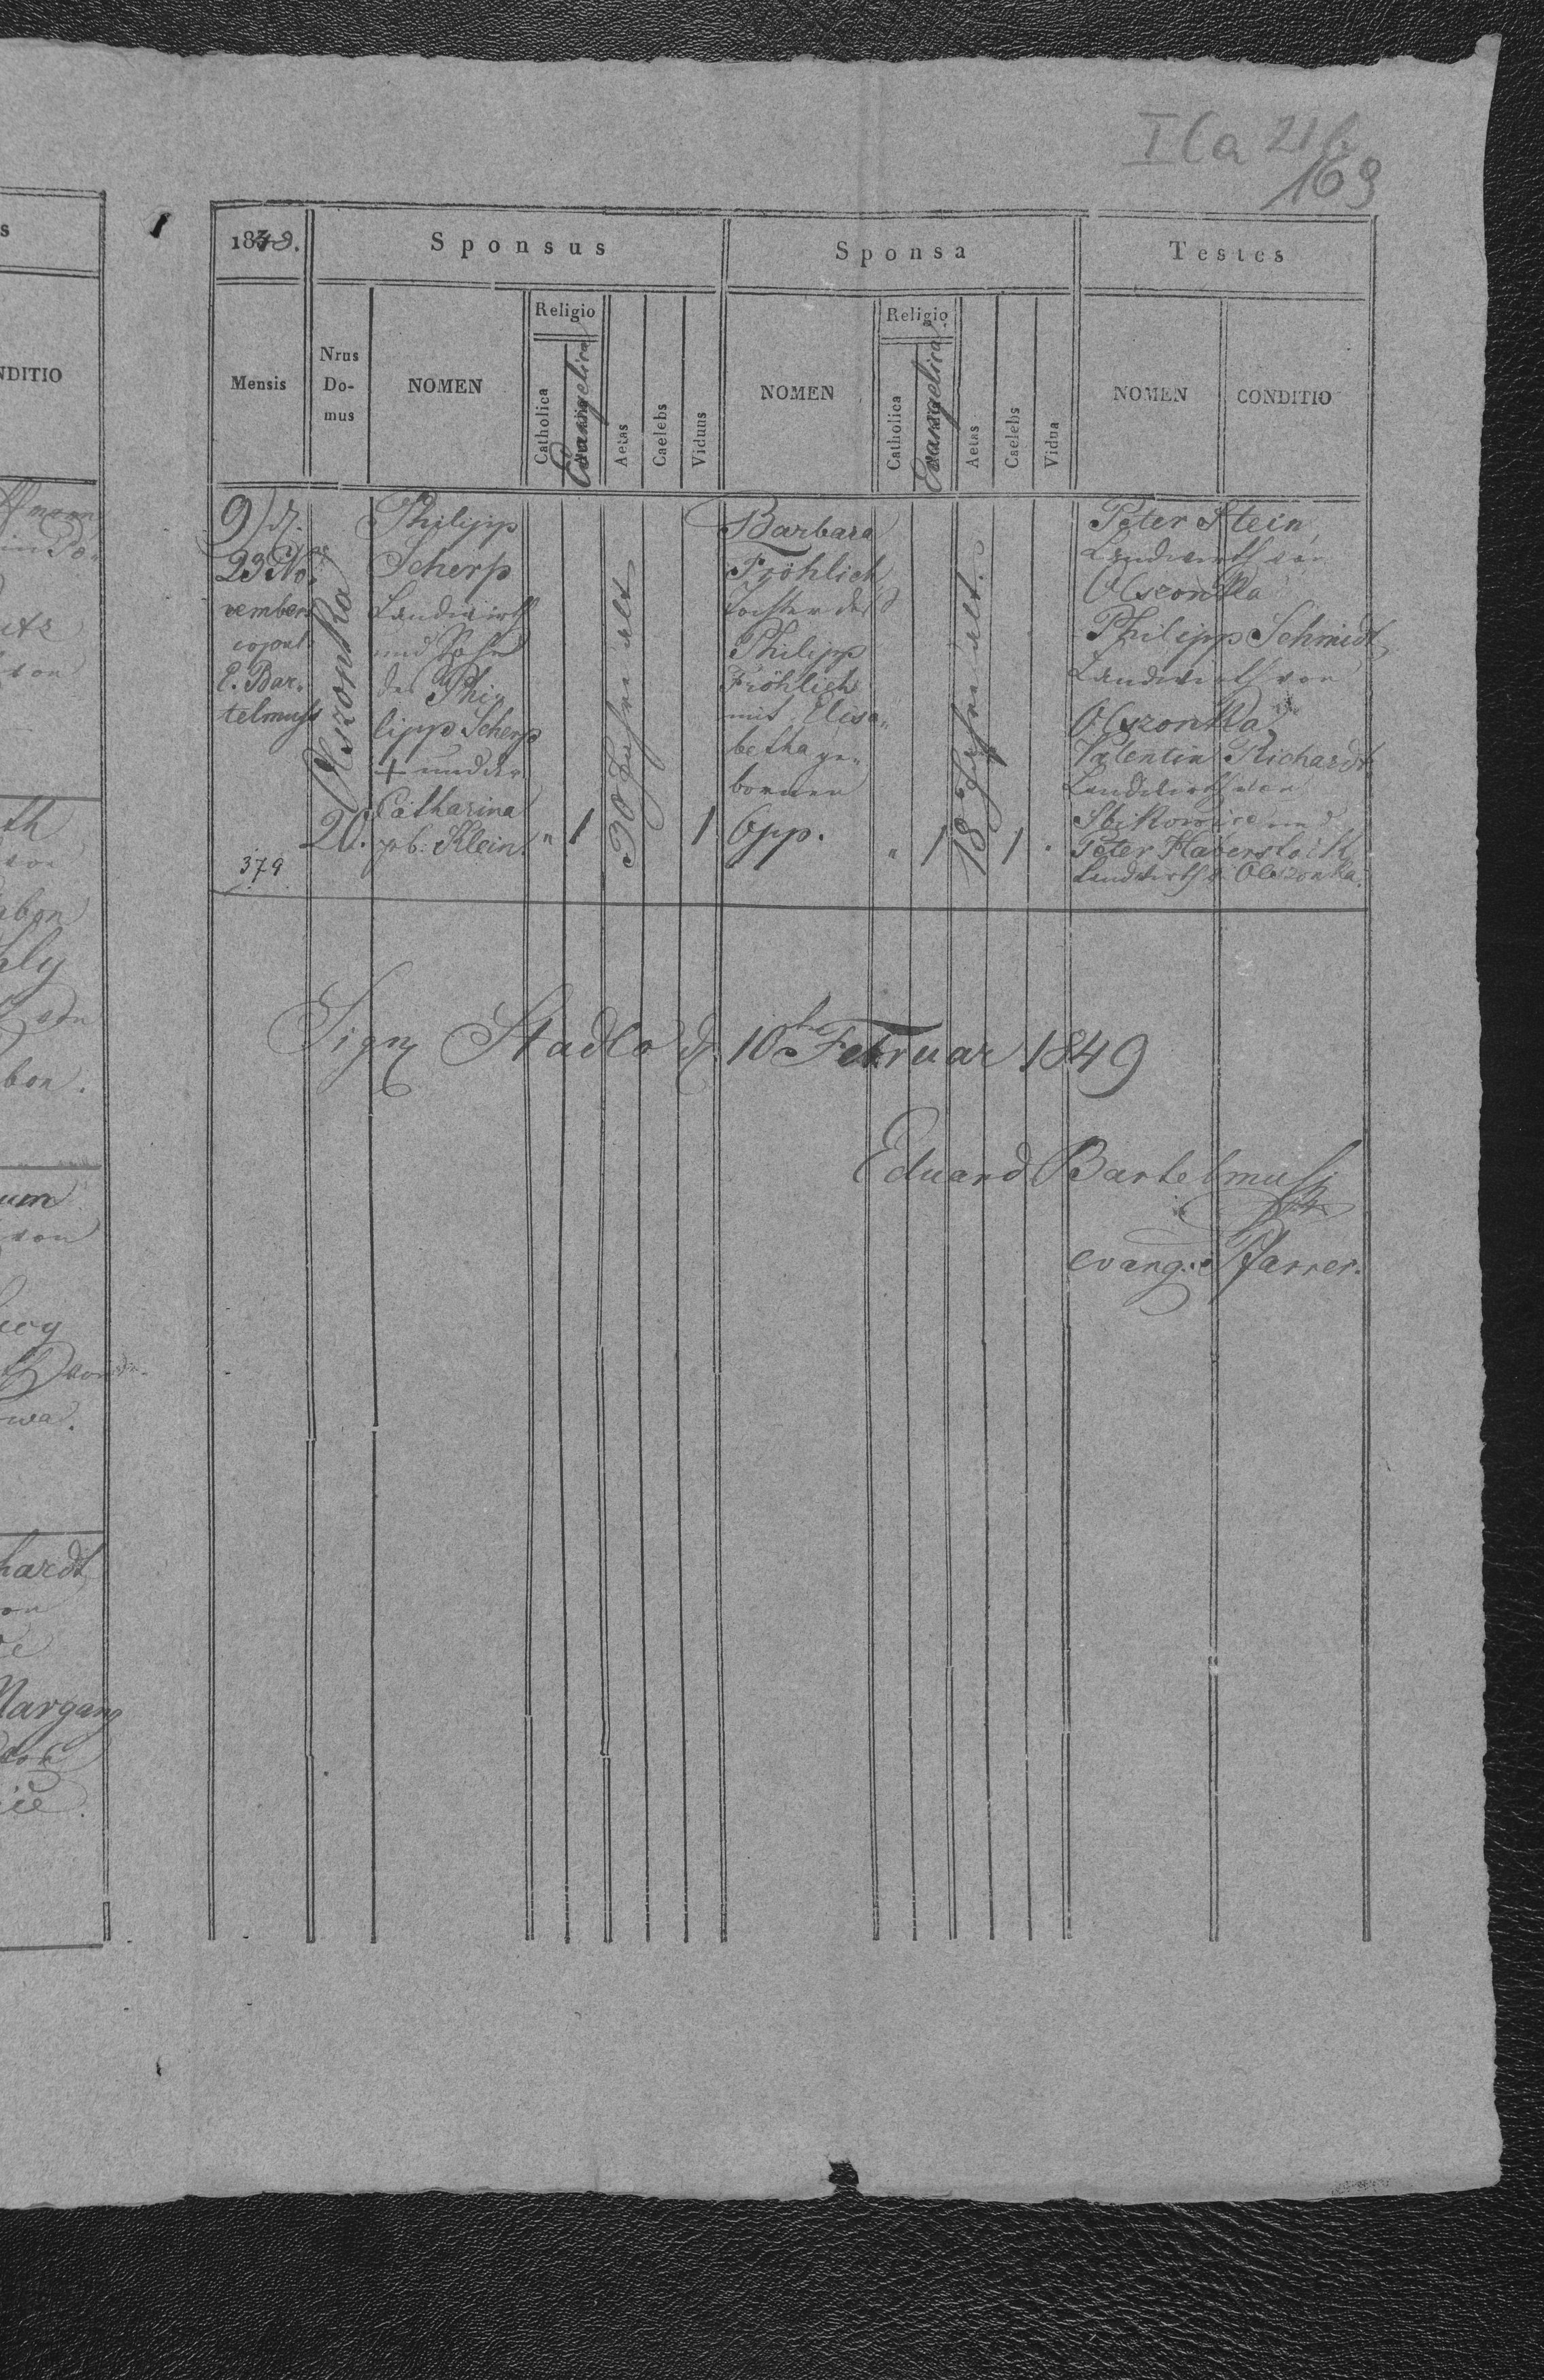 s
NDITIO
von
abon
bon.
um
von
hardt
Margang
I Ca 21 b.
169
1848.
Sponsus
Sponsa
Testes
Mensis
Nrus
Do-
mus
NOMEN
Religio
Catholica
Evangelica
Aetas
Caelebs
Viduus
NOMEN
Religio
Catholica
Evangelica
Aetas
Caelebs
Vidua
NOMEN
CONDITIO
9) d.
23 No-
vember
copul.
E. Bar-
telmuss
379
Olszonka
20.
Philipp
Scherp
Landwirth
und Sohn
des Phi-
lipp Scherp
+ und der
Catharina
gb. Klein.
" 1
30 Jahre alt
1
Barbara
Fröhlich
Tochter des
Philipp
Fröhlich
mit Elisa-
betha ge-
bornen
Opp.
" 1
18 Jahre alt.
1 .
Peter Stein,
Landwirth von
Olszonka
Philipp Schmidt
Landwirth von
Olszonka
Valentin Richardt
Landwirth von
und
Peter Haberstock
Landwirth v. Olszonka.
Sign Stadlo d. 10ten Februar 1849
Eduard Bartelmuss
evang. Pfarrer.